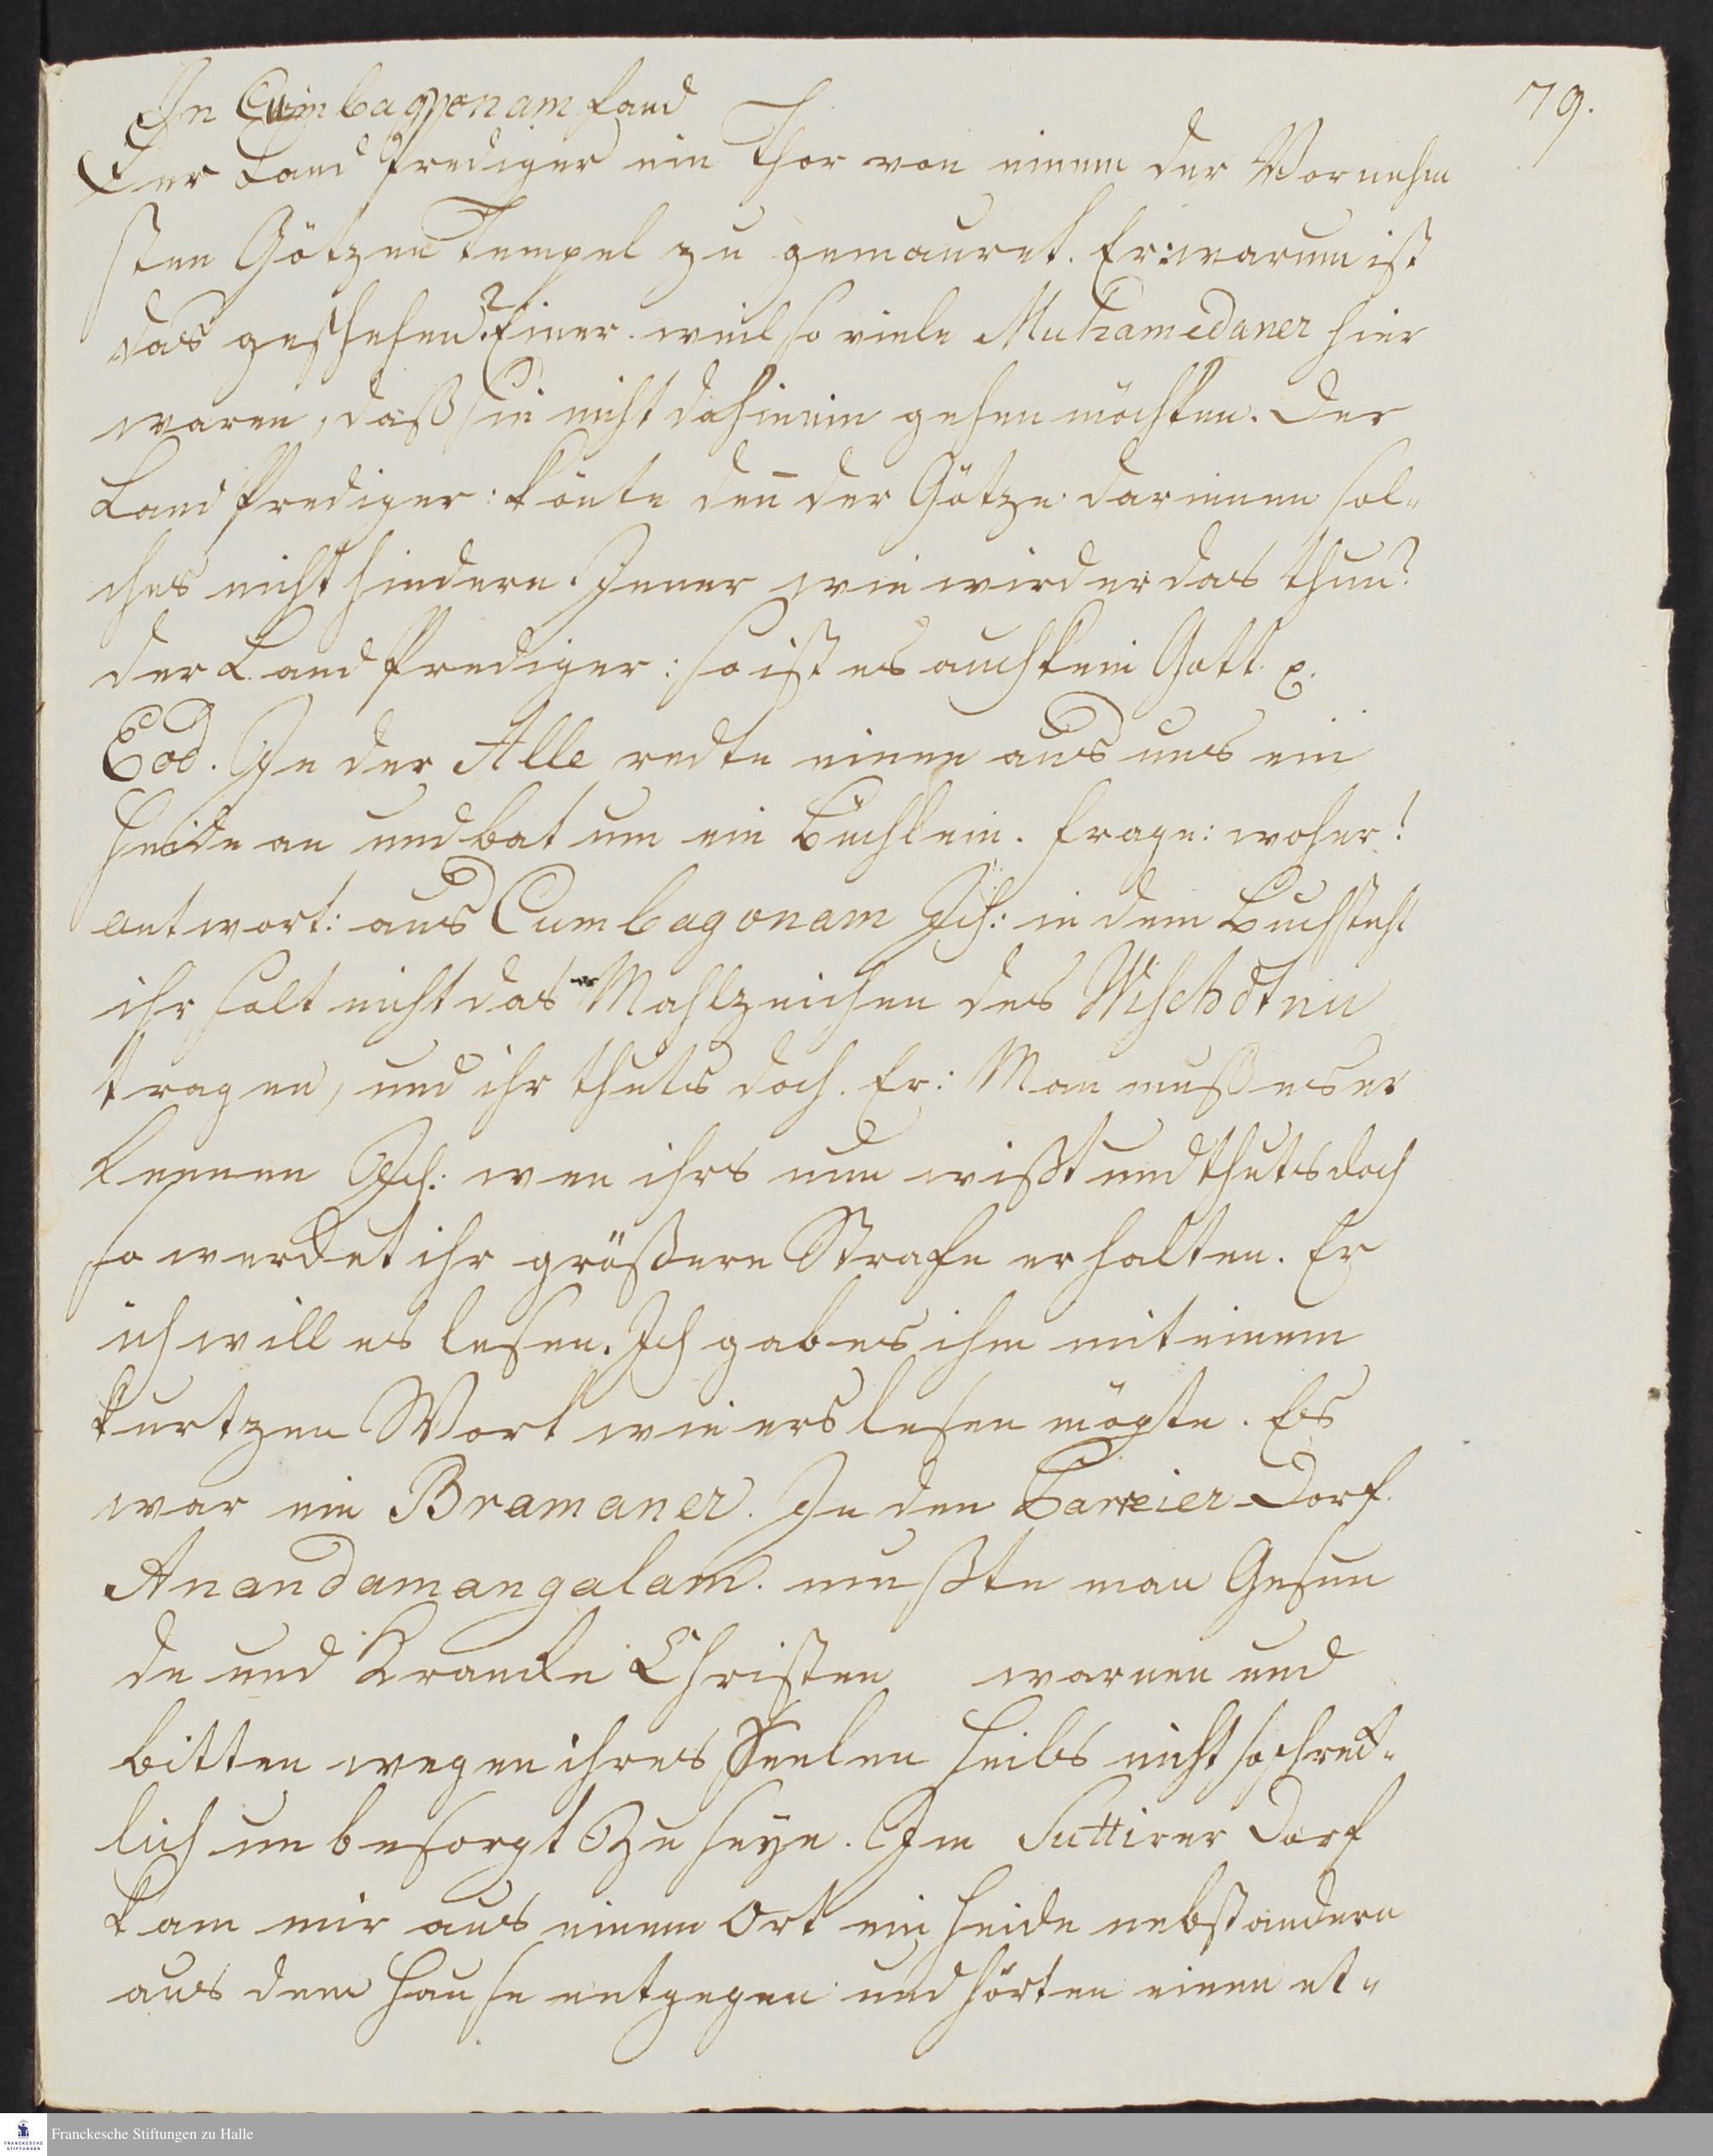 79.
In Cumbagonam fand
Der Land Prediger ein Thor von einem der Vornehm
sten Götzen Tempel zu gemauret. Er: warum ist
das geschehen? Einer. weil so viele Muhamedaner hier
waren, daß sie nicht dahinein gehen möchten. Der
Land Prediger: könte den̅ der Götze darinnen sol-
ches nicht hindern. Jener wie wird er das thun?
der Land Prediger: so ist es auch kein Gott.
Eod. In der Allee redte einen aus uns ein
Heide an und bat um ein Büchlein. Frage: woher!
antwort: aus Cumbagonam Ich: in dem Buch steht
ihr solt nicht das Mahlzeichen des Wischtnu
tragen, und ihr thuts doch. Er: Man muß es er
kennen Ich: wen ihrs nun wißt und thuts doch
so werdet ihr größere Strafe erhalten. Er
ich will es lesen. Ich gab es ihm mit einem
kurtzen Wort wie ers lesen mögte. Es
war ein Bramaner. In den Barreier-Dorf
Anandamangalam. mußte man Gesun
de und Krancke Christen warnen und
bitten wegen ihres Seelen Heils nicht so schreck-
lich unbesorgt zu seyn. Im Suttirer Dorf
kam mir aus einem Ort ein Heide nebst andern
aus dem Hause entgegen und hörten einen et-
Franckesche Stiftungen zu Halle
FRANCKESCHE
STIFTUNGEN